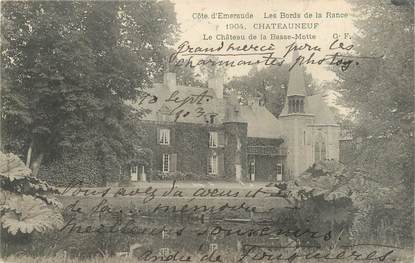 Côte d'Emeraude Les Bords de la Rance
1904. CHATEAUNEUF
Le Château de la Basse-Motte G. F.
Grand merci pour les
charmantes photog.
10 Sept.
03
Vous avez du
de la mémoire
meilleurs souvenirs!
André de